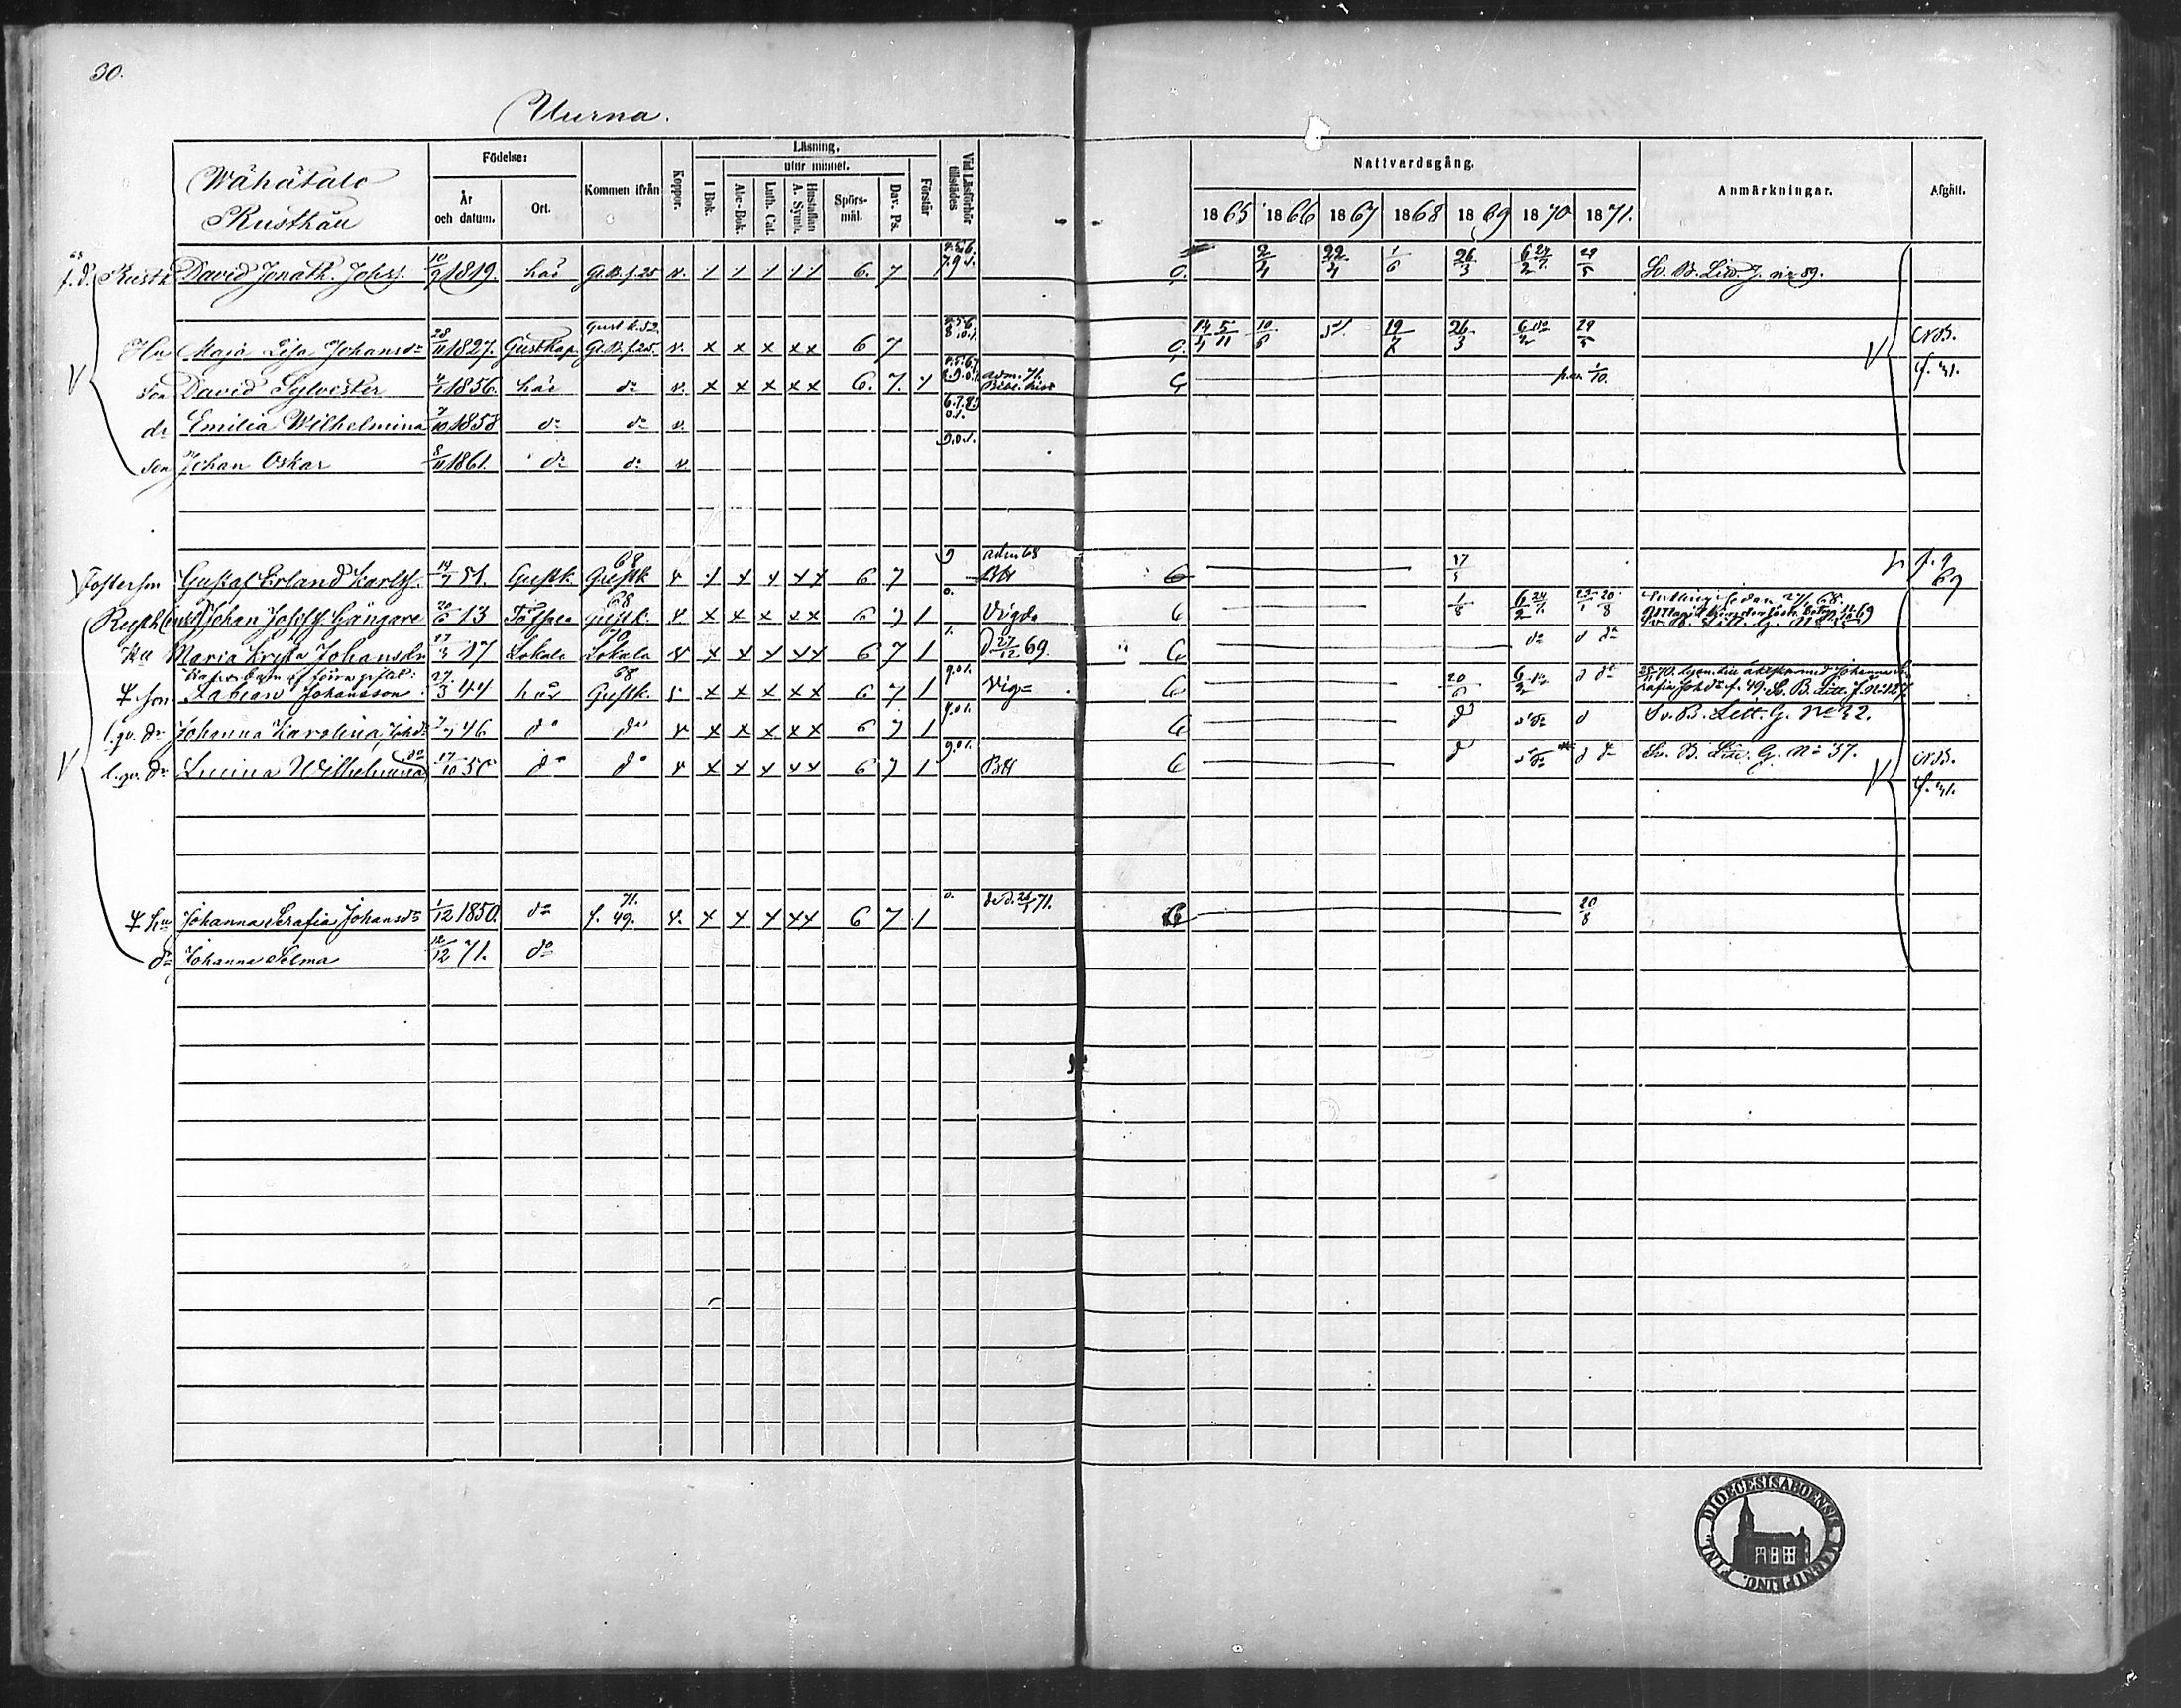 30.
Uurna.
Wähätalo
Rusthåll
Födelse:
År och datum.
Ort.
Kommen ifrån
Koppor.
Läsning,
utur minnet.
I Bok.
Abc-Bok.
Luth. Cat.
Hustaflan
A. Symb.
Spörsmål.
Dav. Ps.
Förstår
Vid Läsförhör tillstädes
Nattvardsgång.
1865 1866 1867 1868 1869 1870 1871.
Anmärkningar.
Afgått.
f.d. Rusth David Jonath. Johss. 10/9 1819. här Gl.B.f.25 v. 6. 7 2/4 22/4 1/6 26/3 6/2 24/7 29/5 Sv. B. Litt. J. No 89.
Hu Maja Lisa Johansdr 28/11 1827. Gustkap. Gust.k.52. Gl.B.f.25. v. x x x x x 6 7 14/4 5/11 10/6 19/7 26/3 6/2 do 29/5 N.B.
Son David Sylvester 1856. här do v. x x x x x 6. 7. adm. 71. 1/10. f. 31.
dr Emilia Wilhelmina 7/10 1858 do do v.
Son Johan Oskar 8/11 1861. do do v
Fosterson Gustaf Erland Karlss. 14/7 51. Gustk. 68 Gustk 6 7 adm 68 BH 17/5 f. 9 69
Rusth Johan Josefss Gångare 20/6 13 Töfsala 68 Gustk. x x x x x 6 7 1 Vigda 1/8 6/2 24/7 20/8
Hu Maria Krista Johansdr 17 Lokala 70 Lokala x x x x x 6 7 1 27/12 69. do d do
son Fabian Johansson 27/3 44 här 68 Gustk. x x x x x 6 7 1 Vig 20/6 6/2 do d do f. 49. Sv. B. Litt. J. No 127
l.qv. dr Johanna Karolina Johdr 46 do do x x x x x 6 7 1 d do d Sv. B. Litt. G. No 32.
l.qv. dr Lucina Wilhelmina do 17/10 50 do do x x x x x 6 7 1 BH d do d do Sv. B. Litt. G. No 37. N.B.
f. 31.
hu Johanna Serafia Johansdr 1/12 1850. do 71. f. 49. v. x x x x x 6 7 1 71. 20/8
dr Johanna Selma 12/12 71. do
DIOECESIS ABOENSIS FINL.